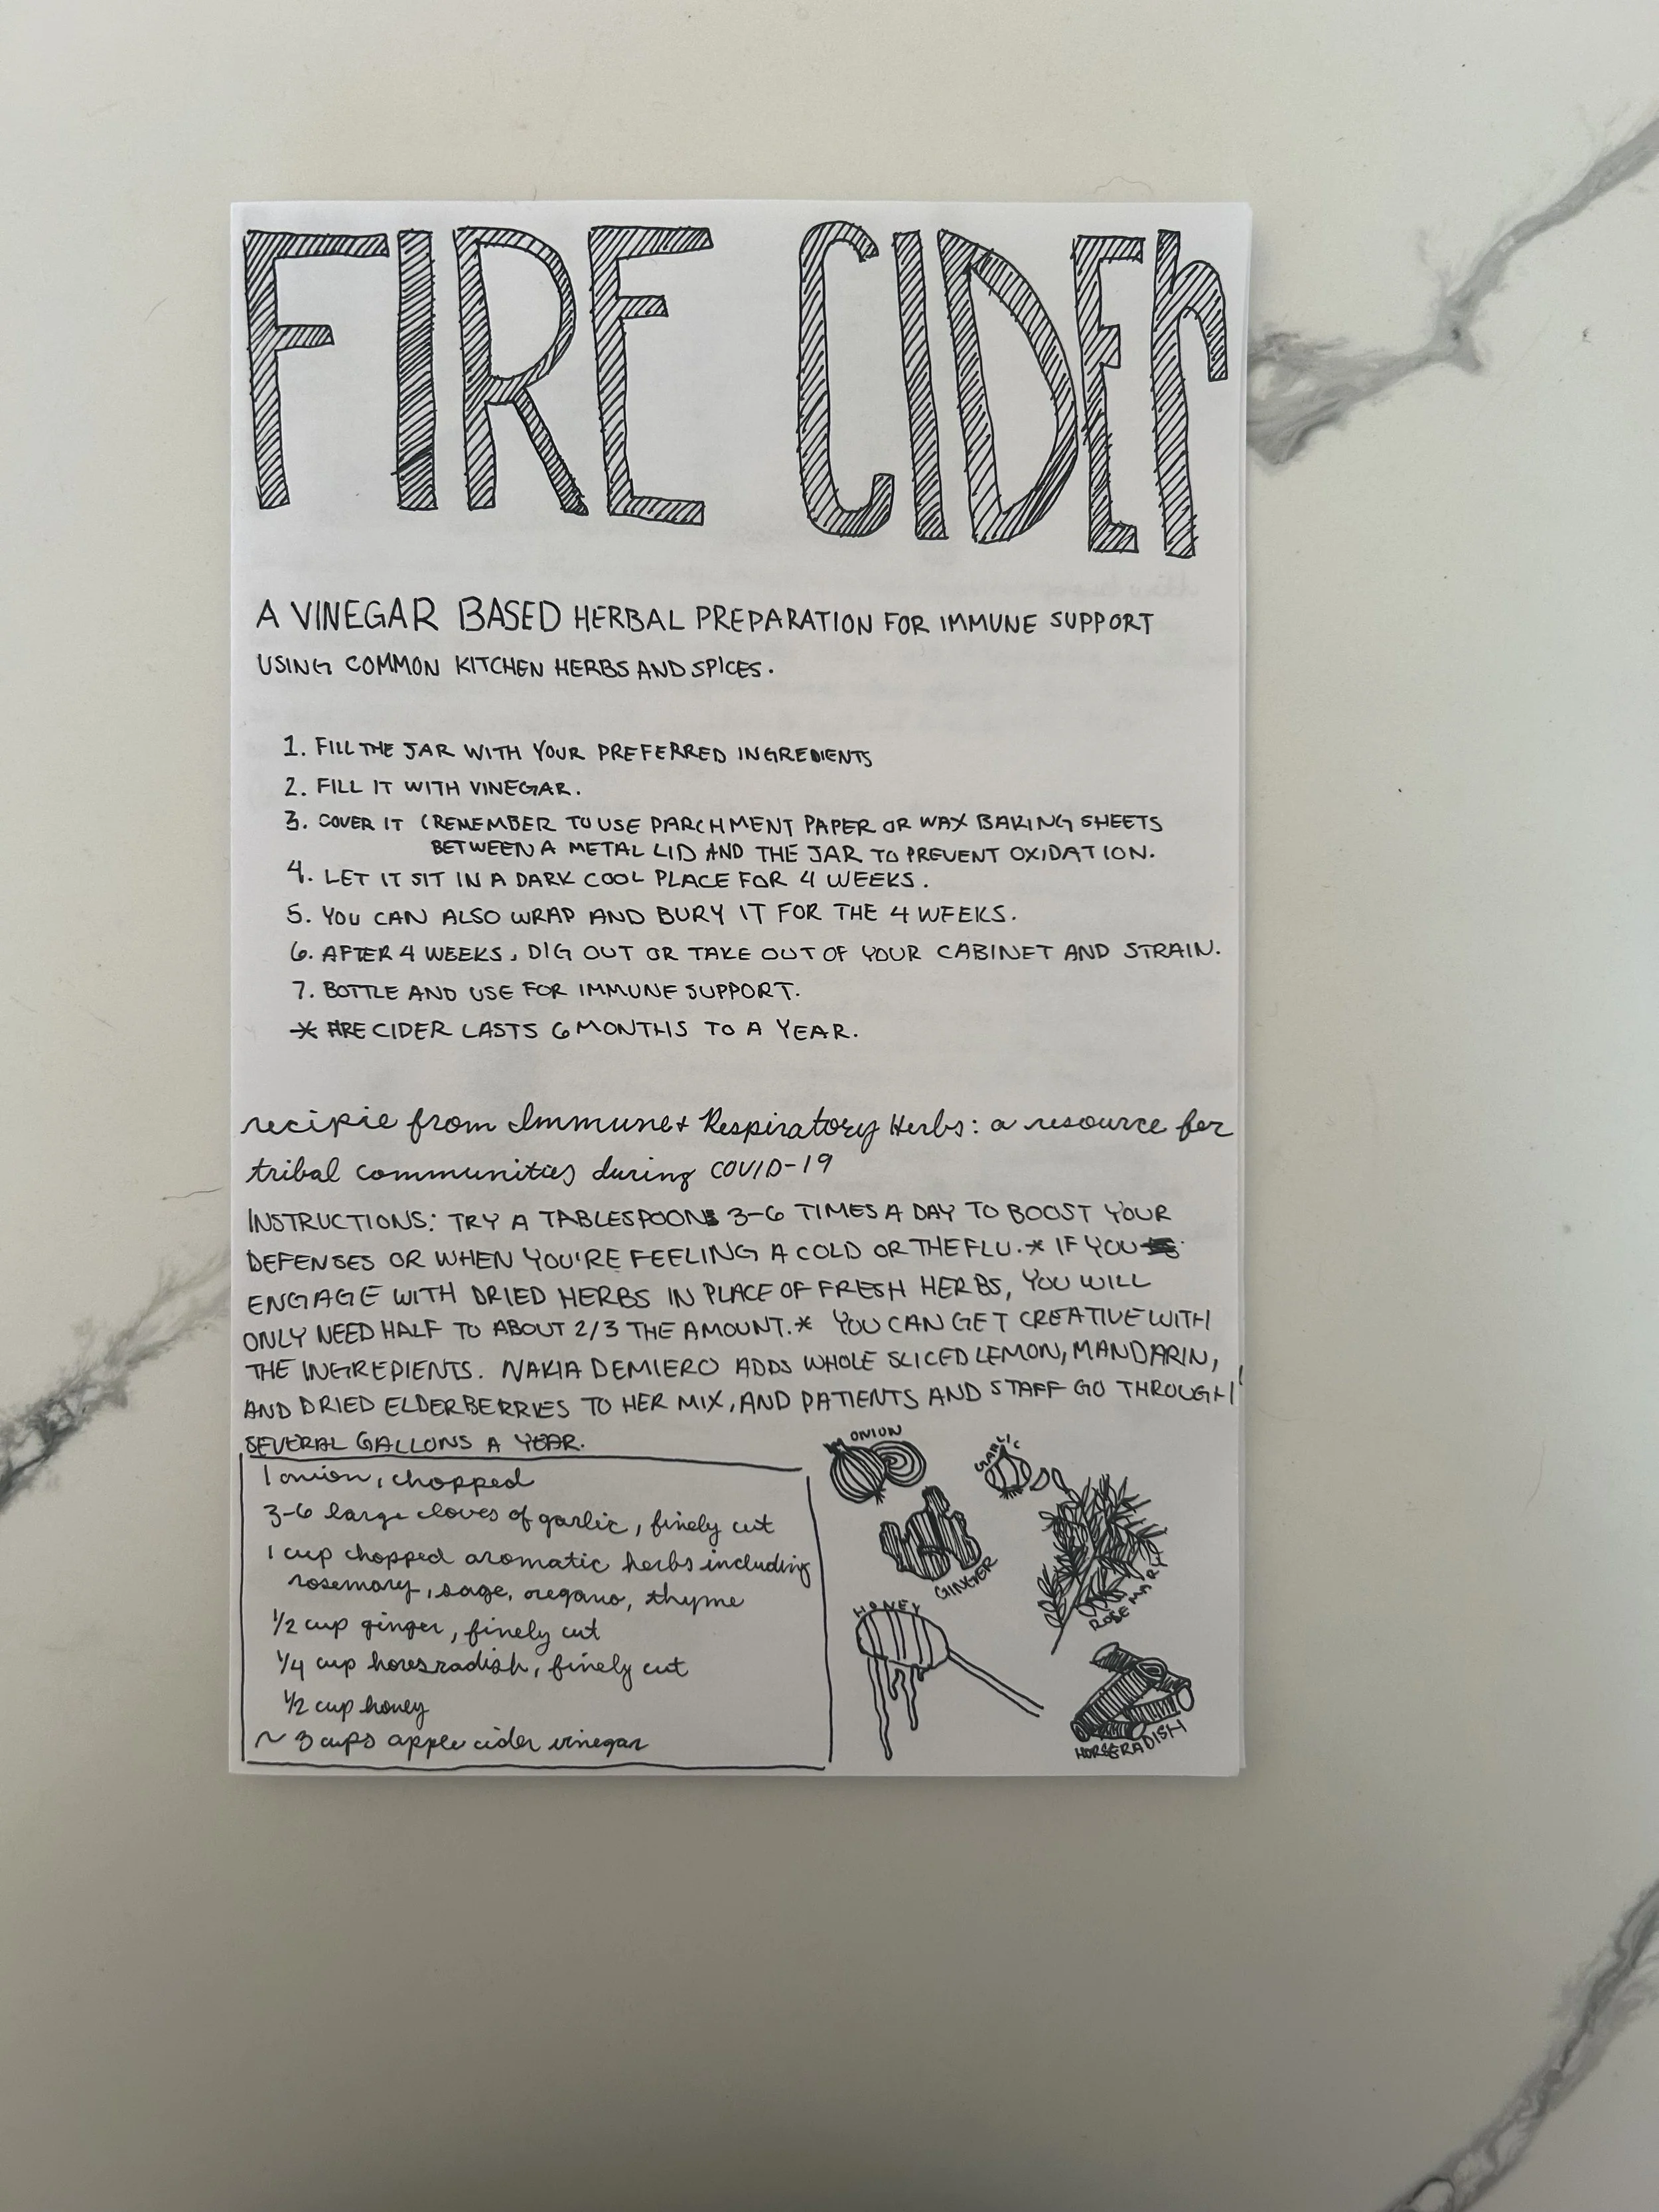 FIRE CIDER
A VINEGAR BASED HERBAL PREPARATION FOR IMMUNE SUPPORT
USING COMMON KITCHEN HERBS AND SPICES.
1. FILL THE JAR WITH YOUR PREFERRED INGREDIENTS
2. FILL IT WITH VINEGAR.
3. COVER IT (REMEMBER TO USE PARCHMENT PAPER OR WAX BAKING SHEETS
BETWEEN A METAL LID AND THE JAR TO PREVENT OXIDATION.
4. LET IT SIT IN A DARK COOL PLACE FOR 4 WEEKS.
5. YOU CAN ALSO WRAP AND BURY IT FOR THE 4 WEEKS.
6. AFTER 4 WEEKS, DIG OUT OR TAKE OUT OF YOUR CABINET AND STRAIN.
7. BOTTLE AND USE FOR IMMUNE SUPPORT.
* FIRE CIDER LASTS 6 MONTHS TO A YEAR.
recipie from Immune + Respiratory Herbs: a resource for
tribal communities during COVID-19
INSTRUCTIONS: TRY A TABLESPOON 3-6 TIMES A DAY TO BOOST YOUR
DEFENSES OR WHEN YOU'RE FEELING A COLD OR THE FLU.* IF YOU
ENGAGE WITH DRIED HERBS IN PLACE OF FRESH HERBS, YOU WILL
ONLY NEED HALF TO ABOUT 2/3 THE AMOUNT.* YOU CAN GET CREATIVE WITH
THE INGREDIENTS. NAKIA DEMIERO ADDS WHOLE SLICED LEMON, MANDARIN,
AND DRIED ELDERBERRIES TO HER MIX, AND PATIENTS AND STAFF GO THROUGH
SEVERAL GALLONS A YEAR.
1 onion, chopped
3-6 large cloves of garlic, finely cut
1 cup chopped aromatic herbs including
rosemary, sage, oregano, thyme
1/2 cup ginger, finely cut
1/4 cup horesradish, finely cut
1/2 cup honey
~ 3 cups apple cider vinegar
ONION
GARLIC
GINGER
ROSEMARY
HONEY
HORSERADISH